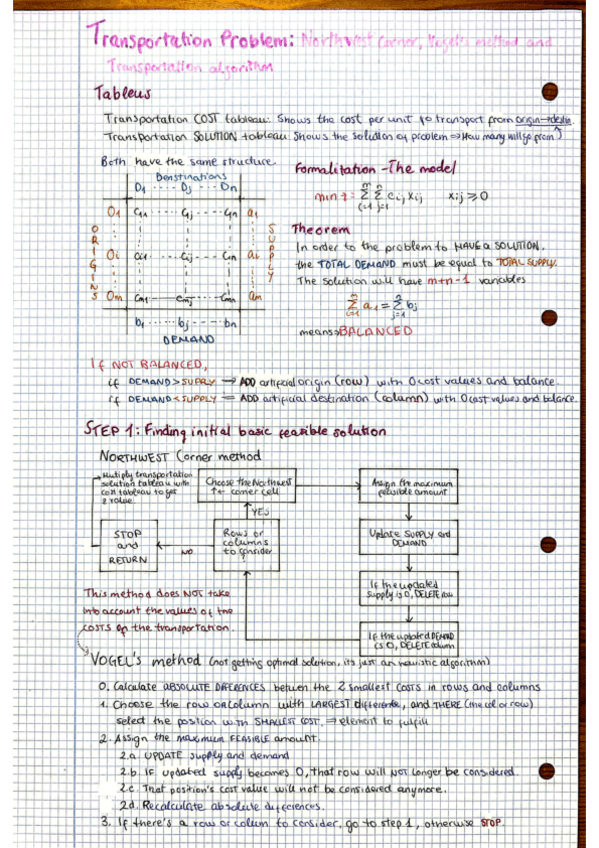 Transportation Problem: Northwest Corner, Vogel's method and
Transportation algorithm
Tableus
Transportation COST tableau: Shows the cost per unit to transport from origin→destin
Transportation SOLUTION tableau: Shows the solution of problem ⇒ How many will go from
Both have the same structure.
Benstinations
D1 ···· Dj ···· Dn
O1 C11 ···· C1j ···· C1n a1
Oi Ci1 ···· Cij ···· Cin ai
Om Cm1 ···· Cmj ···· Cmn am
b1 ···· bj ···· bn
ORIGINS
SUPPLY
DEMAND
Formalitation - The model
min z = Σ(i=1..m) Σ(j=1..n) cij xij xij ≥ 0
Theorem
In order to the problem to HAVE a SOLUTION.
the TOTAL DEMAND must be equal to TOTAL SUPPLY.
The solution will have m+n-1 variables
Σ(i=1) a1 = Σ(j=1..n) bj
means⇒BALANCED
If NOT BALANCED,
if DEMAND > SUPPLY → ADD artificial origin (row) with 0 cost values and balance.
if DEMAND < SUPPLY = ADD artificial destination (column) with 0 cost values and balance.
STEP 1: Finding initial basic feasible solution
NORTHWEST Corner method
Multiply transportation
solution tableau with
cost tableau to get
z value.
Choose the Northwest
↑← corner cell
Assign the maximum
feasible amount
YES
STOP
and
RETURN
NO
Rows or
columns
to consider
Update SUPPLY and
DEMAND
If the updated
supply is 0, DELETE row
If the updated DEMAND
is 0, DELETE column
This method does NOT take
into account the values of the
COSTS of the transportation.
VOGEL's method (not getting optimal solution, it's just an heuristic algorithm)
0. Calculate ABSOLUTE DIFERENCES betwen the 2 smallest COSTS in rows and columns
1. Choose the row OR column with LARGEST diference, and THERE (the col or row)
select the postion with SMALLEST COST. ⇒ element to fulfill
2. Assign the MAXIMUM FEASIBLE amount.
2.a. UPDATE supply and demand
2.b. IF updated supply becomes 0, that row will NOT longer be considered.
2.c. That position's cost value will not be considered anymore.
2d. Recalculate absolute diferences.
3. If there's a row or colum to consider, go to step 1, otherwise STOP.